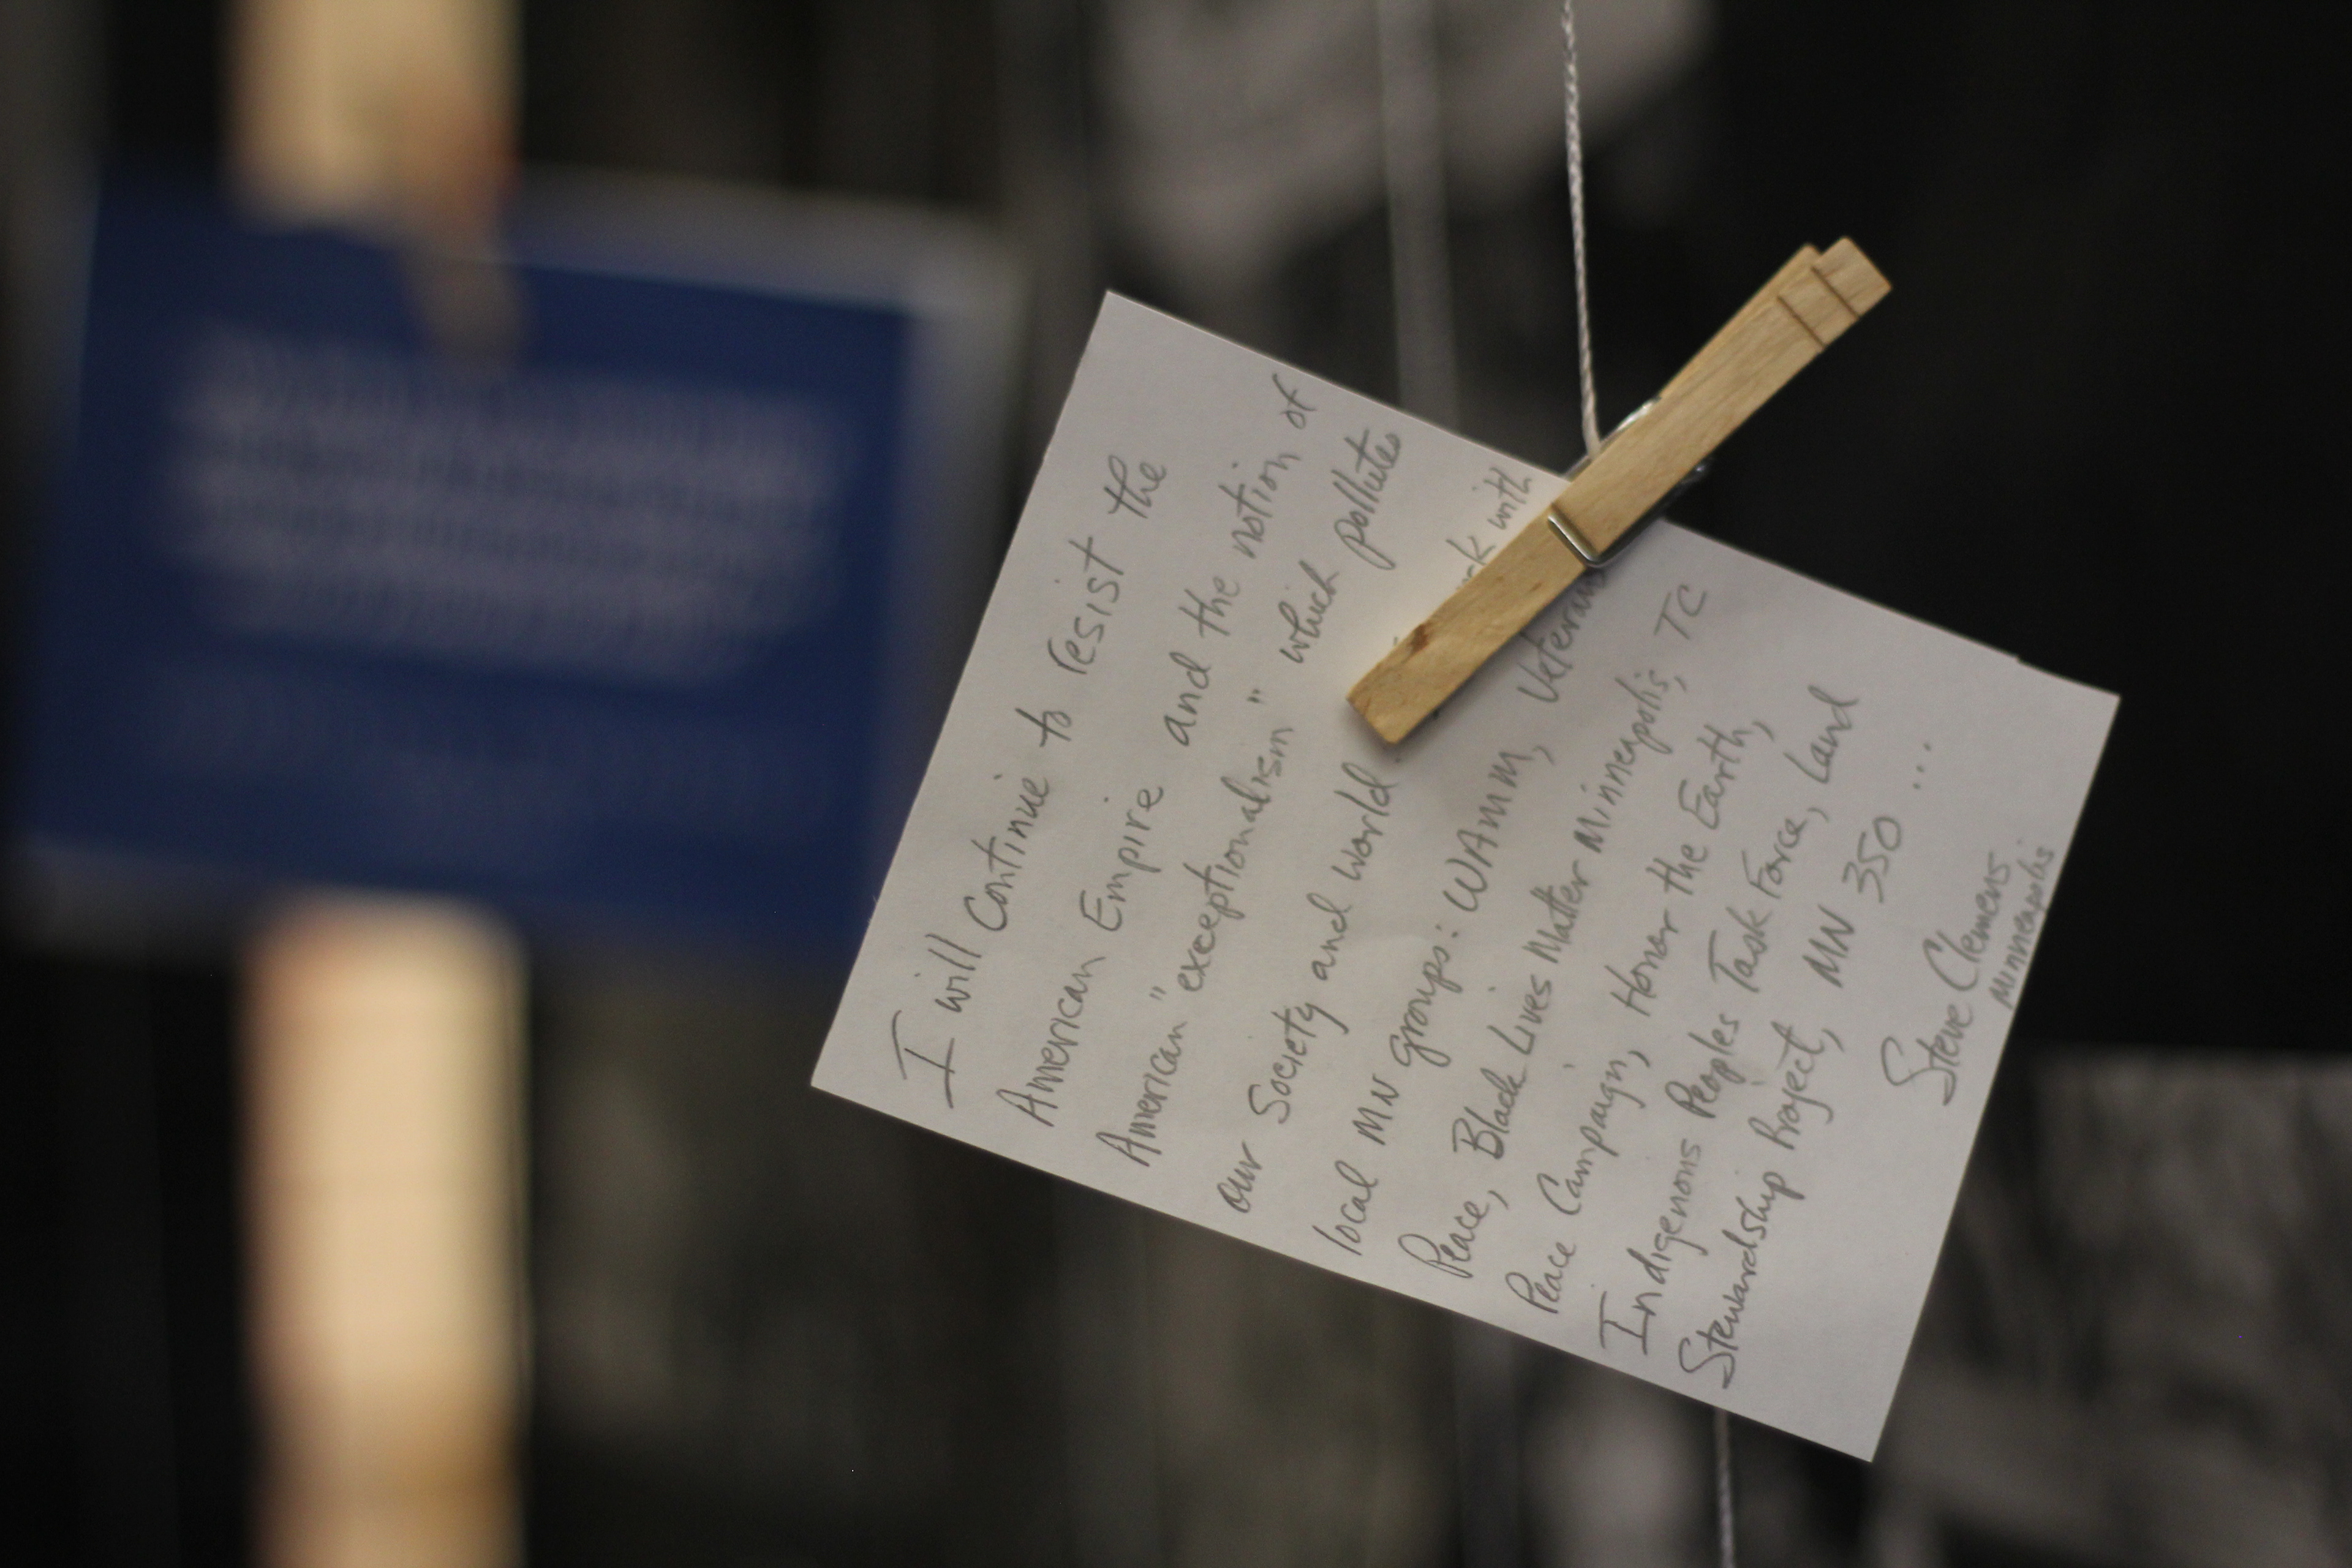 I will continue to resist the
American Empire and the notion of
American "exceptionalism" which pollutes
our Society and world with
local MN groups: WAMM, Veterans
Peace, Black Lives Matter Minneapolis, TC
Peace Campaign, Honor the Earth,
Indigenous Peoples Task Force, Land
Stewardship Project, MN 350 ...
Steve Clemens
Minneapolis